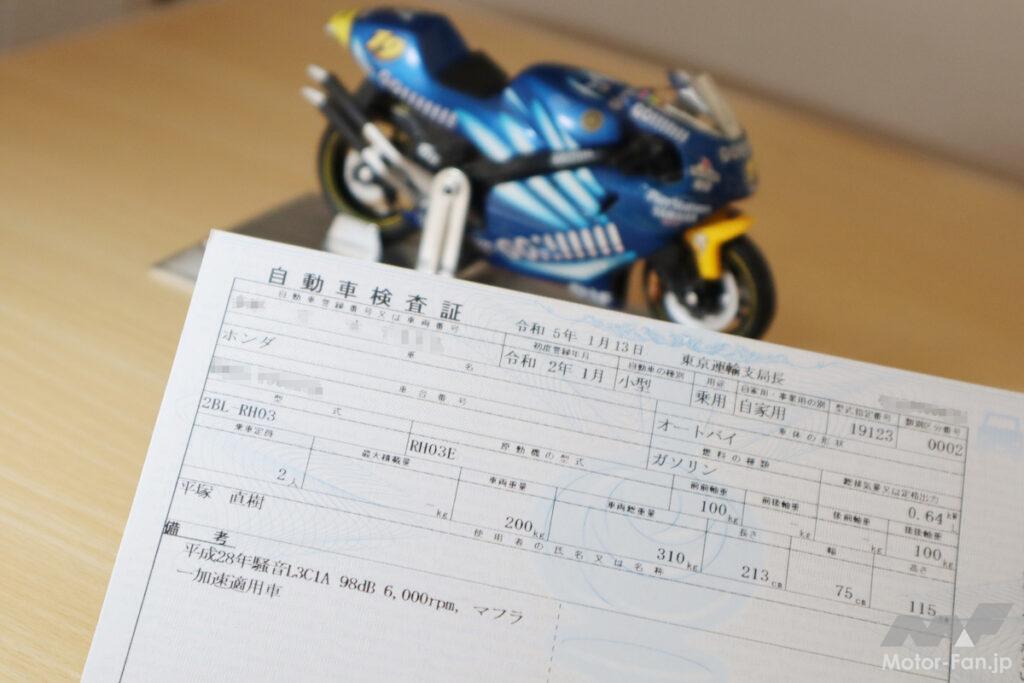 自動車検査証
令和 5年 1月13日 東京運輸支局長
自動車登録番号又は車両番号 初度登録年月 自動車の種別 用途 自家用・事業用の別 型式指定番号 類別区分番号
令和 2年 1月 小型 乗用 自家用 19123 0002
車名 車体の形状
ホンダ オートバイ
車台番号 燃料の種類 総排気量又は定格出力
ガソリン 0.64 kW
型式 原動機の型式
2BL-RH03 RH03E
乗車定員 最大積載量 車両重量 車両総重量 前前軸重 前後軸重 後前軸重 後後軸重
2人 kg 200kg 310kg 100kg kg kg 100kg
長さ 幅 高さ
213cm 75cm 115
使用者の氏名又は名称
平塚 直樹
備考
平成28年騒音L3C1A 98dB 6,000rpm, マフラ
ー加速適用車
19
PlayStation
Motor-Fan.jp